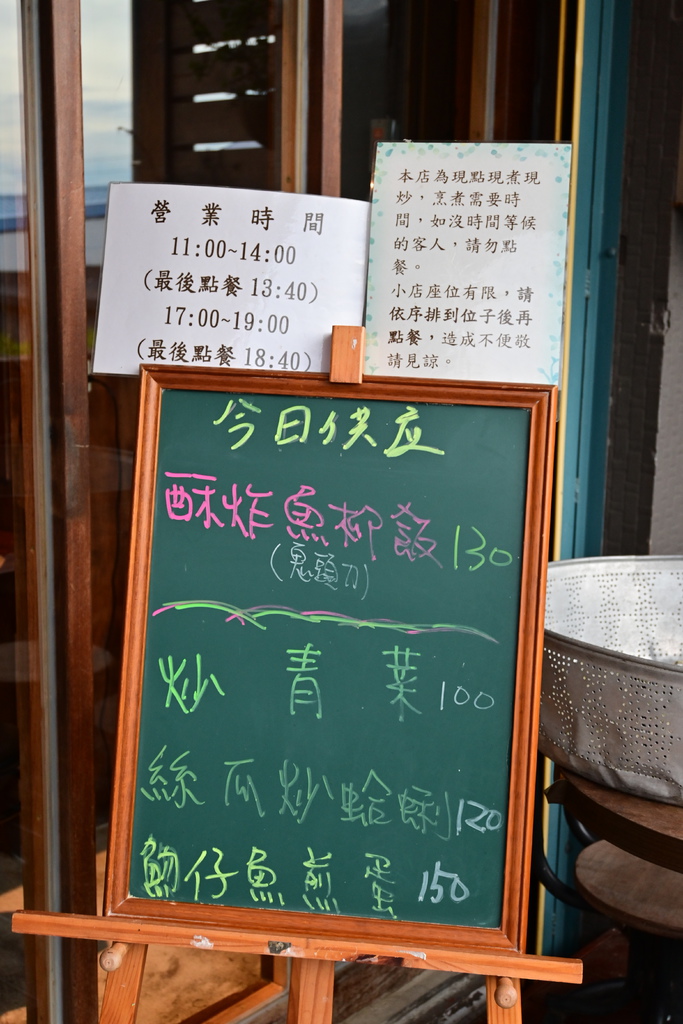 營業時間
11:00~14:00
(最後點餐 13:40)
17:00~19:00
(最後點餐 18:40)
本店為現點現煮現
炒，烹煮需要時
間，如沒時間等候
的客人，請勿點
餐。
小店座位有限，請
依序排到位子後再
點餐，造成不便敬
請見諒。
今日供应
酥炸魚柳飯 130
(鬼頭刀)
炒青菜 100
絲瓜炒蛤蜊 120
魩仔魚煎蛋 150